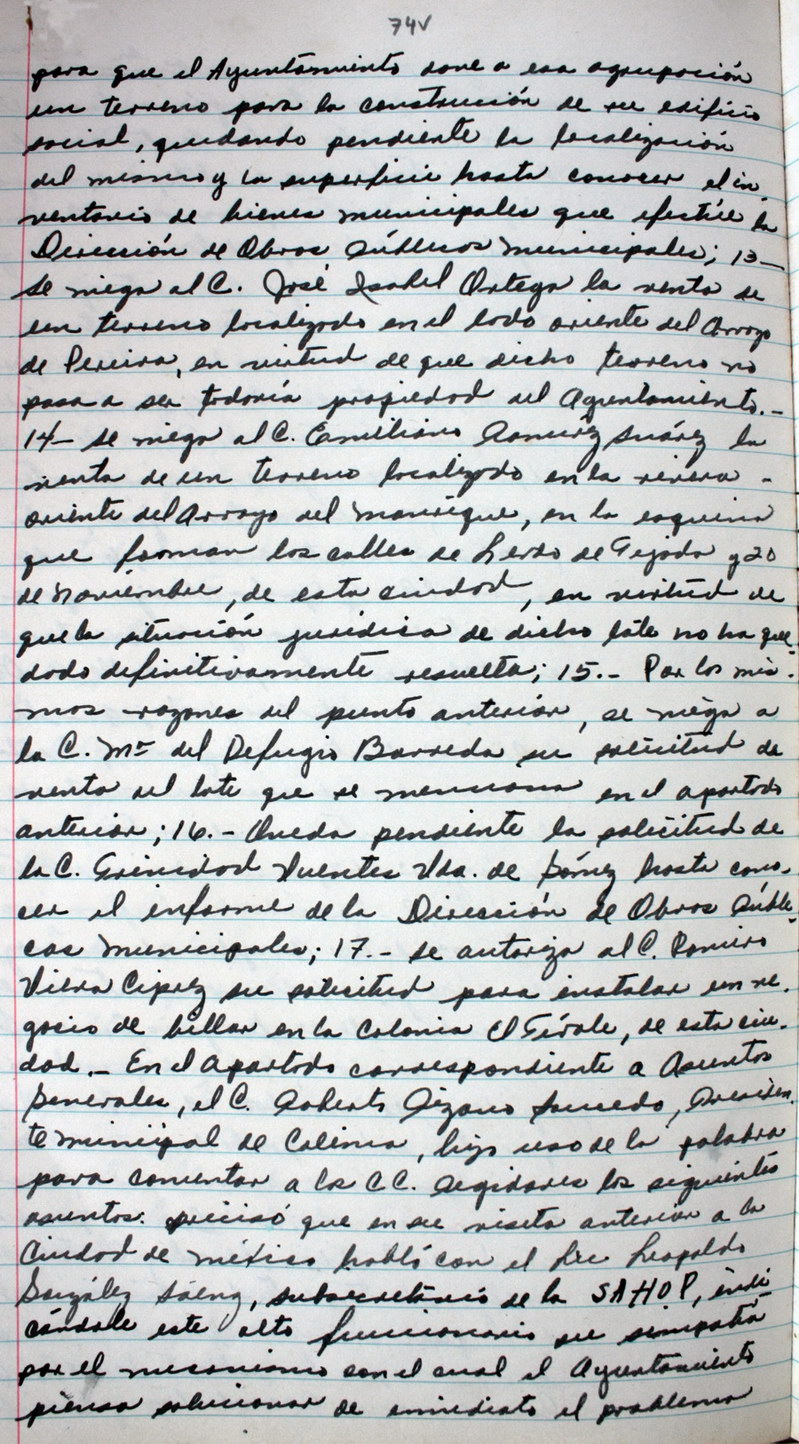 74V
para que el Ayuntamiento done a esa agrupación
un terreno para la construcción de su edificio
social, quedando pendiente la localización
del mismo y la superficie hasta conocer el in
ventario de bienes municipales que efectúe la
Dirección de Obras Públicas Municipales; 13-
se niega al C. José Isabel Ortega la venta de
un terreno localizado en el lado oriente del Arroyo
de Pereira, en virtud de que dicho terreno no
pasa a ser todavía propiedad del Ayuntamiento.-
14- se niega al C. Emiliano Ramírez Suárez la
venta de un terreno localizado en la rivera -
oriente del Arroyo del Manrique, en la esquina
que forman las calles de Lerdo de Tejada y 20
de Noviembre, de esta ciudad, en virtud de
que la situación jurídica de dicho lote no ha que-
dado definitivamente resuelta; 15.- Por las mis-
mas razones del punto anterior, se niega a
la C. Ma del Refugio Barreda su solicitud de
venta del lote que se menciona en el apartado
anterior; 16.- Queda pendiente la solicitud de
la C. Trinidad Fuentes Vda. de Gómez hasta cono-
cer el informe de la Dirección de Obras Públi-
cas Municipales; 17.- se autoriza al C. Ramiro
Viera Ciprez su solicitud para instalar un ne-
gocio de billar en la Colonia El Tívoli, de esta ciu-
dad.- En el apartado correspondiente a Asuntos
Generales, el C. Roberto Pizano Saucedo, Presiden-
te Municipal de Colima, hizo uso de la palabra
para comentar a los CC. Regidores los siguientes
asuntos: precisó que en su visita anterior a la
Ciudad de México habló con el Lic Leopoldo
González Sáenz, subsecretario de la SAHOP, indi
cándole este alto funcionario su simpatía
por el mecanismo con el cual el Ayuntamiento
piensa solucionar de inmediato el problema